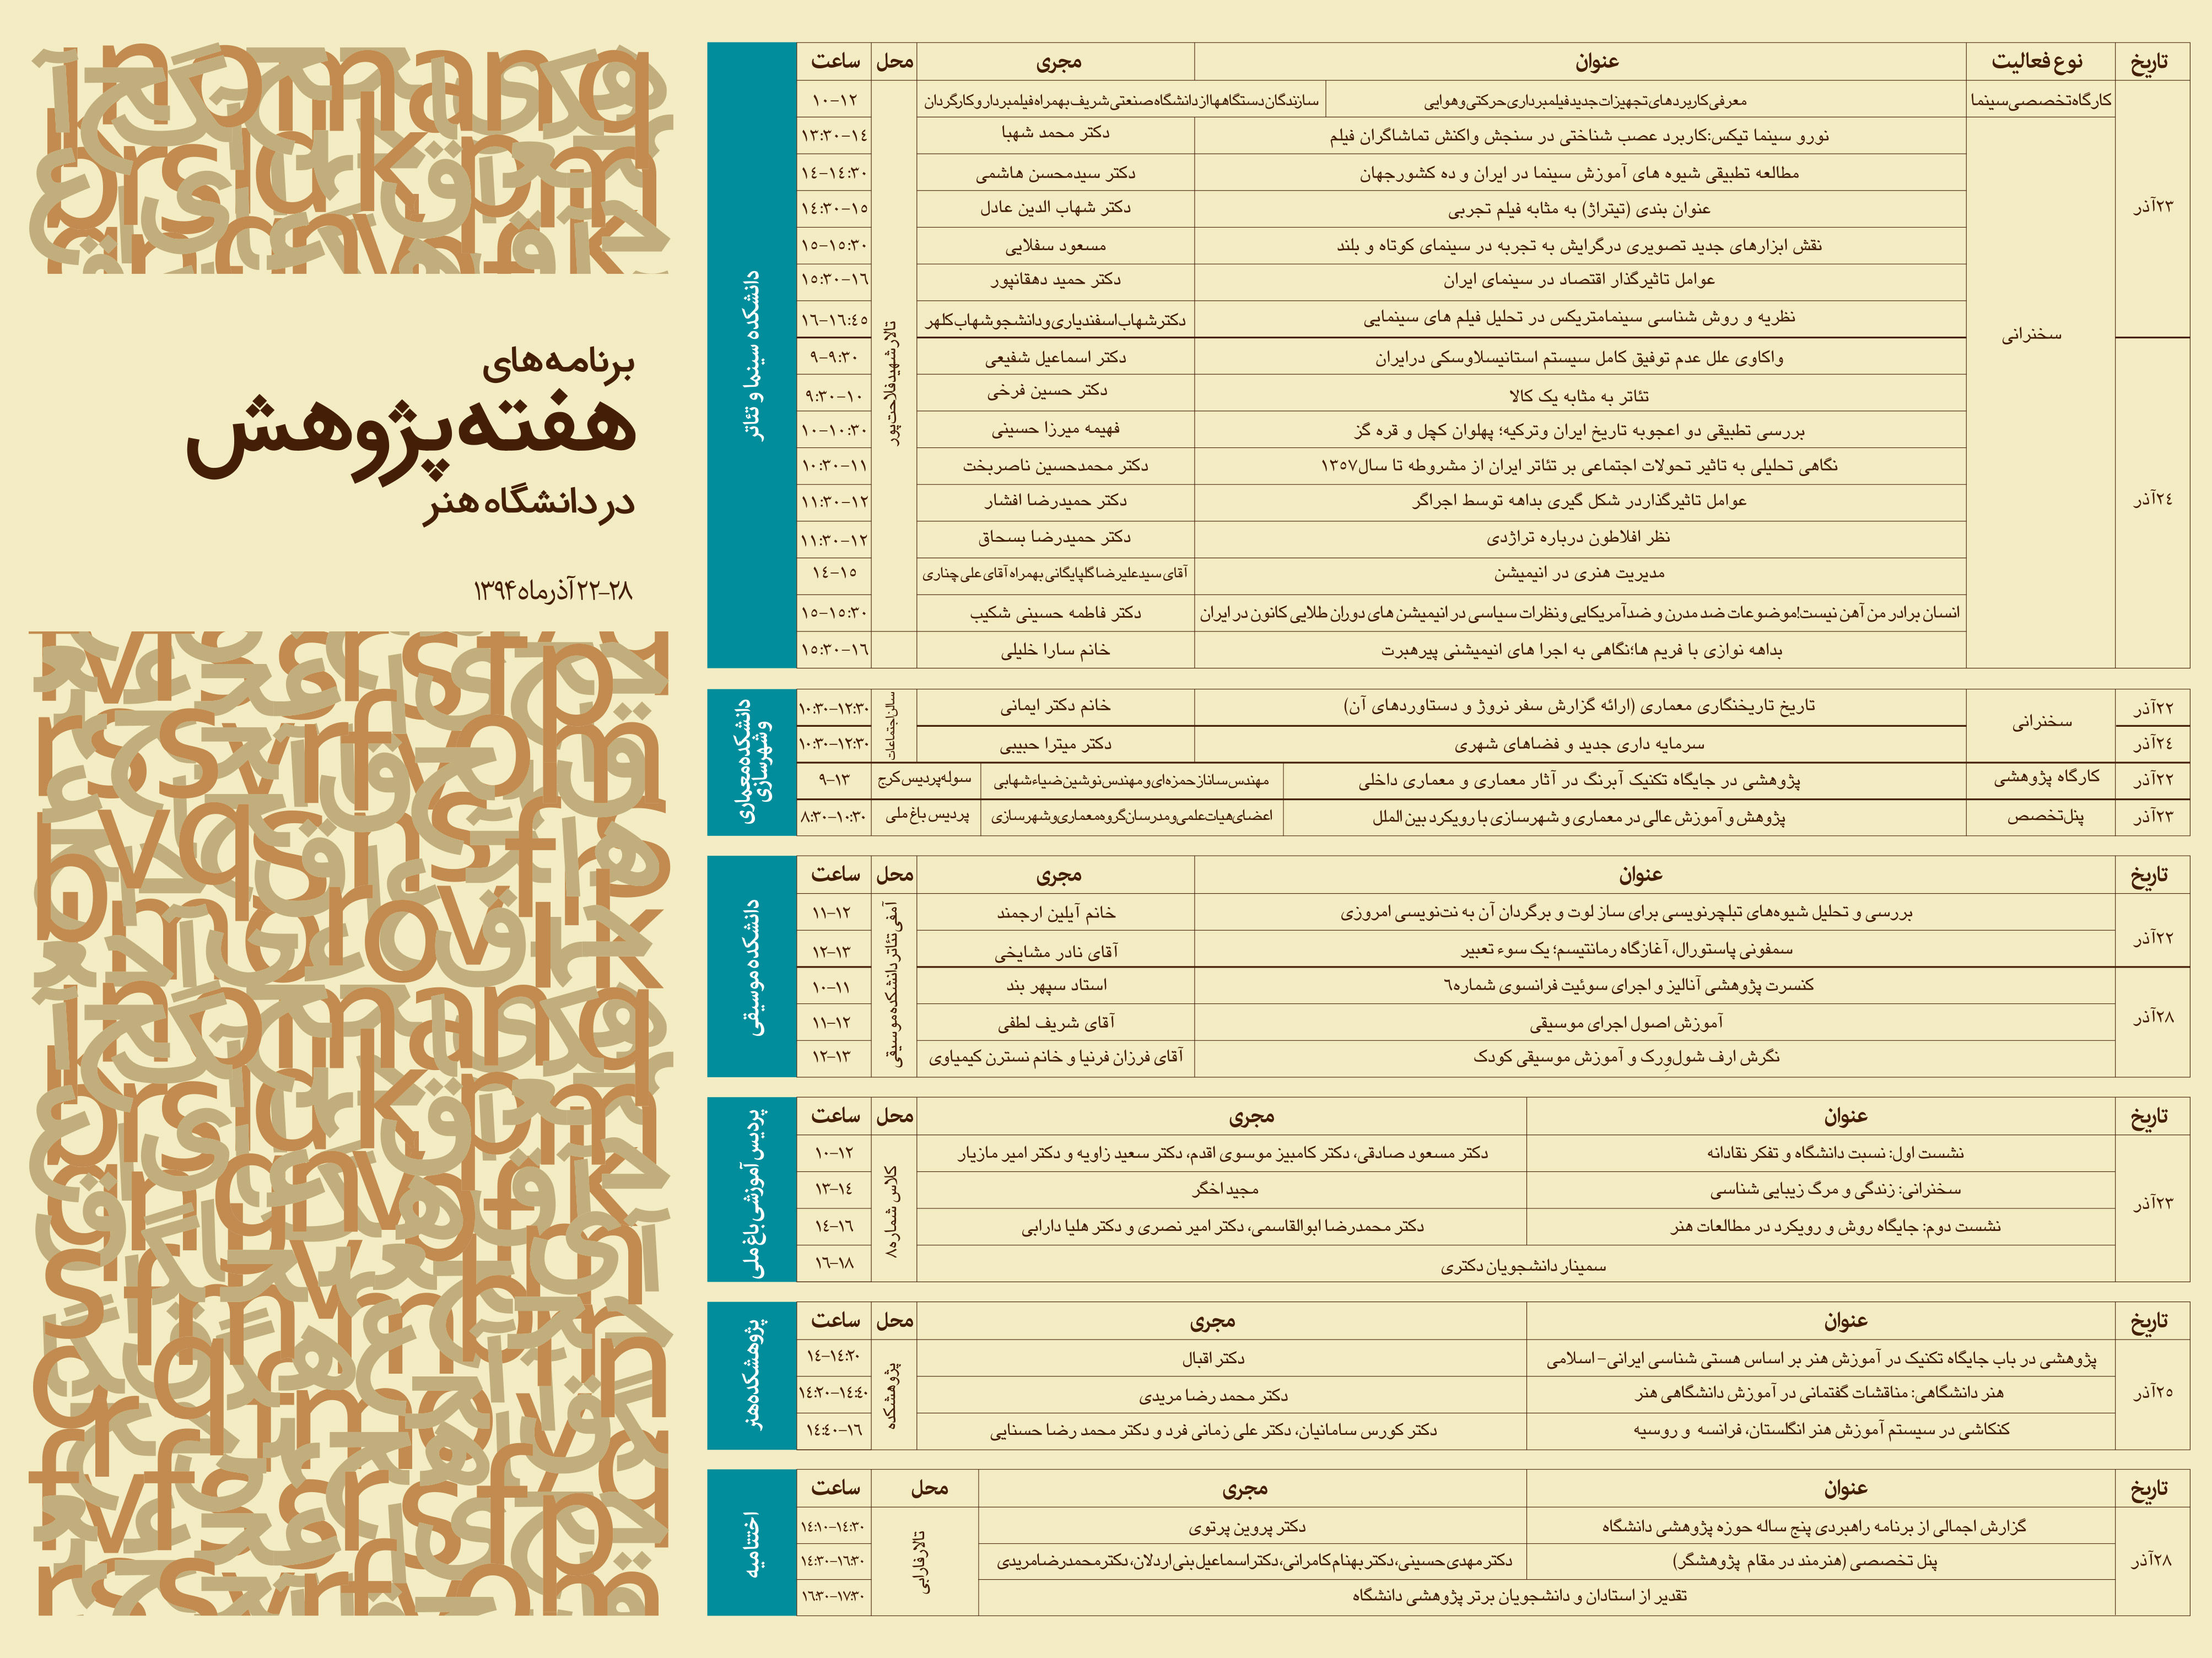 برنامه‌های
هفته پژوهش
در دانشگاه هنر
۲۲-۲۸ آذرماه ۱۳۹۴
دانشکده سینما و تئاتر
تاریخ نوع فعالیت عنوان مجری محل ساعت
۲۳آذر کارگاه تخصصی سینما معرفی کاربردهای تجهیزات جدید فیلمبرداری حرکتی و هوایی سازندگان دستگاهها از دانشگاه صنعتی شریف بهمراه فیلمبردار و کارگردان تالار شهید فلاحت‌پور ۱۰-۱۲
سخنرانی نورو سینما تیکس:کاربرد عصب شناختی در سنجش واکنش تماشاگران فیلم دکتر محمد شهبا ۱۳:۳۰-۱٤
مطالعه تطبیقی شیوه های آموزش سینما در ایران و ده کشورجهان دکتر سیدمحسن هاشمی ۱٤-۱٤:۳۰
عنوان بندی (تیتراژ) به مثابه فیلم تجربی دکتر شهاب الدین عادل ۱٤:۳۰-۱٥
نقش ابزارهای جدید تصویری درگرایش به تجربه در سینمای کوتاه و بلند مسعود سفلایی ۱٥-۱٥:۳۰
عوامل تاثیرگذار اقتصاد در سینمای ایران دکتر حمید دهقانپور ۱٥:۳۰-۱٦
نظریه و روش شناسی سینمامتریکس در تحلیل فیلم های سینمایی دکتر شهاب اسفندیاری و دانشجو شهاب کلهر ۱٦-۱٦:٤٥
۲٤آذر واکاوی علل عدم توفیق کامل سیستم استانیسلاوسکی درایران دکتر اسماعیل شفیعی ۹-۹:۳۰
تئاتر به مثابه یک کالا دکتر حسین فرخی ۹:۳۰-۱۰
بررسی تطبیقی دو اعجوبه تاریخ ایران وترکیه؛ پهلوان کچل و قره گز فهیمه میرزا حسینی ۱۰-۱۰:۳۰
نگاهی تحلیلی به تاثیر تحولات اجتماعی بر تئاتر ایران از مشروطه تا سال۱۳٥۷ دکتر محمدحسین ناصربخت ۱۰:۳۰-۱۱
عوامل تاثیرگذاردر شکل گیری بداهه توسط اجراگر دکتر حمیدرضا افشار ۱۱:۳۰-۱۲
نظر افلاطون درباره تراژدی دکتر حمیدرضا بسحاق ۱۱:۳۰-۱۲
مدیریت هنری در انیمیشن آقای سیدعلیرضا گلپایگانی بهمراه آقای علی چناری ۱٤-۱٥
انسان برادر من آهن نیست!موضوعات ضد مدرن و ضدآمریکایی ونظرات سیاسی در انیمیشن های دوران طلایی کانون در ایران دکتر فاطمه حسینی شکیب ۱٥-۱٥:۳۰
بداهه نوازی با فریم ها؛نگاهی به اجرا های انیمیشنی پیرهبرت خانم سارا خلیلی ۱٥:۳۰-۱٦
دانشکده معماری
و شهرسازی
۲۲آذر سخنرانی تاریخ تاریخنگاری معماری (ارائه گزارش سفر نروژ و دستاوردهای آن) خانم دکتر ایمانی سالن اجتماعات ۱۰:۳۰-۱۲:۳۰
۲٤آذر سرمایه داری جدید و فضاهای شهری دکتر میترا حبیبی ۱۰:۳۰-۱۲:۳۰
۲۲آذر کارگاه پژوهشی پژوهشی در جایگاه تکنیک آبرنگ در آثار معماری و معماری داخلی مهندس ساناز حمزه‌ای و مهندس نوشین ضیاء شهابی سوله پردیس کرج ۹-۱۳
۲۳آذر پنل تخصص پژوهش و آموزش عالی در معماری و شهرسازی با رویکرد بین الملل اعضای هیات علمی و مدرسان گروه معماری و شهرسازی پردیس باغ ملی ۸:۳۰-۱۰:۳۰
دانشکده موسیقی
تاریخ عنوان مجری محل ساعت
۲۲آذر بررسی و تحلیل شیوه‌های تبلچرنویسی برای ساز لوت و برگردان آن به نت‌نویسی امروزی خانم آیلین ارجمند آمفی تئاتر دانشکده موسیقی ۱۱-۱۲
سمفونی پاستورال، آغازگاه رمانتیسم؛ یک سوء تعبیر آقای نادر مشایخی ۱۲-۱۳
۲۸آذر کنسرت پژوهشی آنالیز و اجرای سوئیت فرانسوی شماره٦ استاد سپهر بند ۱۰-۱۱
آموزش اصول اجرای موسیقی آقای شریف لطفی ۱۱-۱۲
نگرش ارف شول‌وِرک و آموزش موسیقی کودک آقای فرزان فرنیا و خانم نسترن کیمیاوی ۱۲-۱۳
پردیس آموزشی باغ ملی
تاریخ عنوان مجری محل ساعت
۲۳آذر نشست اول: نسبت دانشگاه و تفکر نقادانه دکتر مسعود صادقی، دکتر کامبیز موسوی اقدم، دکتر سعید زاویه و دکتر امیر مازیار کلاس شماره۸ ۱۰-۱۲
سخنرانی: زندگی و مرگ زیبایی شناسی مجید اخگر ۱۳-۱٤
نشست دوم: جایگاه روش و رویکرد در مطالعات هنر دکتر محمدرضا ابوالقاسمی، دکتر امیر نصری و دکتر هلیا دارابی ۱٤-۱٦
سمینار دانشجویان دکتری ۱٦-۱۸
پژوهشکده هنر
تاریخ عنوان مجری محل ساعت
۲٥آذر پژوهشی در باب جایگاه تکنیک در آموزش هنر بر اساس هستی شناسی ایرانی-اسلامی دکتر اقبال پژوهشکده ۱٤-۱٤:۲۰
هنر دانشگاهی: مناقشات گفتمانی در آموزش دانشگاهی هنر دکتر محمد رضا مریدی ۱٤:۲۰-۱٤:٤۰
کنکاشی در سیستم آموزش هنر انگلستان، فرانسه و روسیه دکتر کورس سامانیان، دکتر علی زمانی فرد و دکتر محمد رضا حسنایی ۱٤:٤۰-۱٦
اختتامیه
تاریخ عنوان مجری محل ساعت
۲۸آذر گزارش اجمالی از برنامه راهبردی پنج ساله حوزه پژوهشی دانشگاه دکتر پروین پرتوی تالار فارابی ۱٤:۱۰-۱٤:۳۰
پنل تخصصی (هنرمند در مقام پژوهشگر) دکتر مهدی حسینی، دکتر بهنام کامرانی، دکتر اسماعیل بنی اردلان، دکتر محمدرضا مریدی ۱٤:۳۰-۱٦:۳۰
تقدیر از استادان و دانشجویان برتر پژوهشی دانشگاه ۱٦:۳۰-۱۷:۳۰